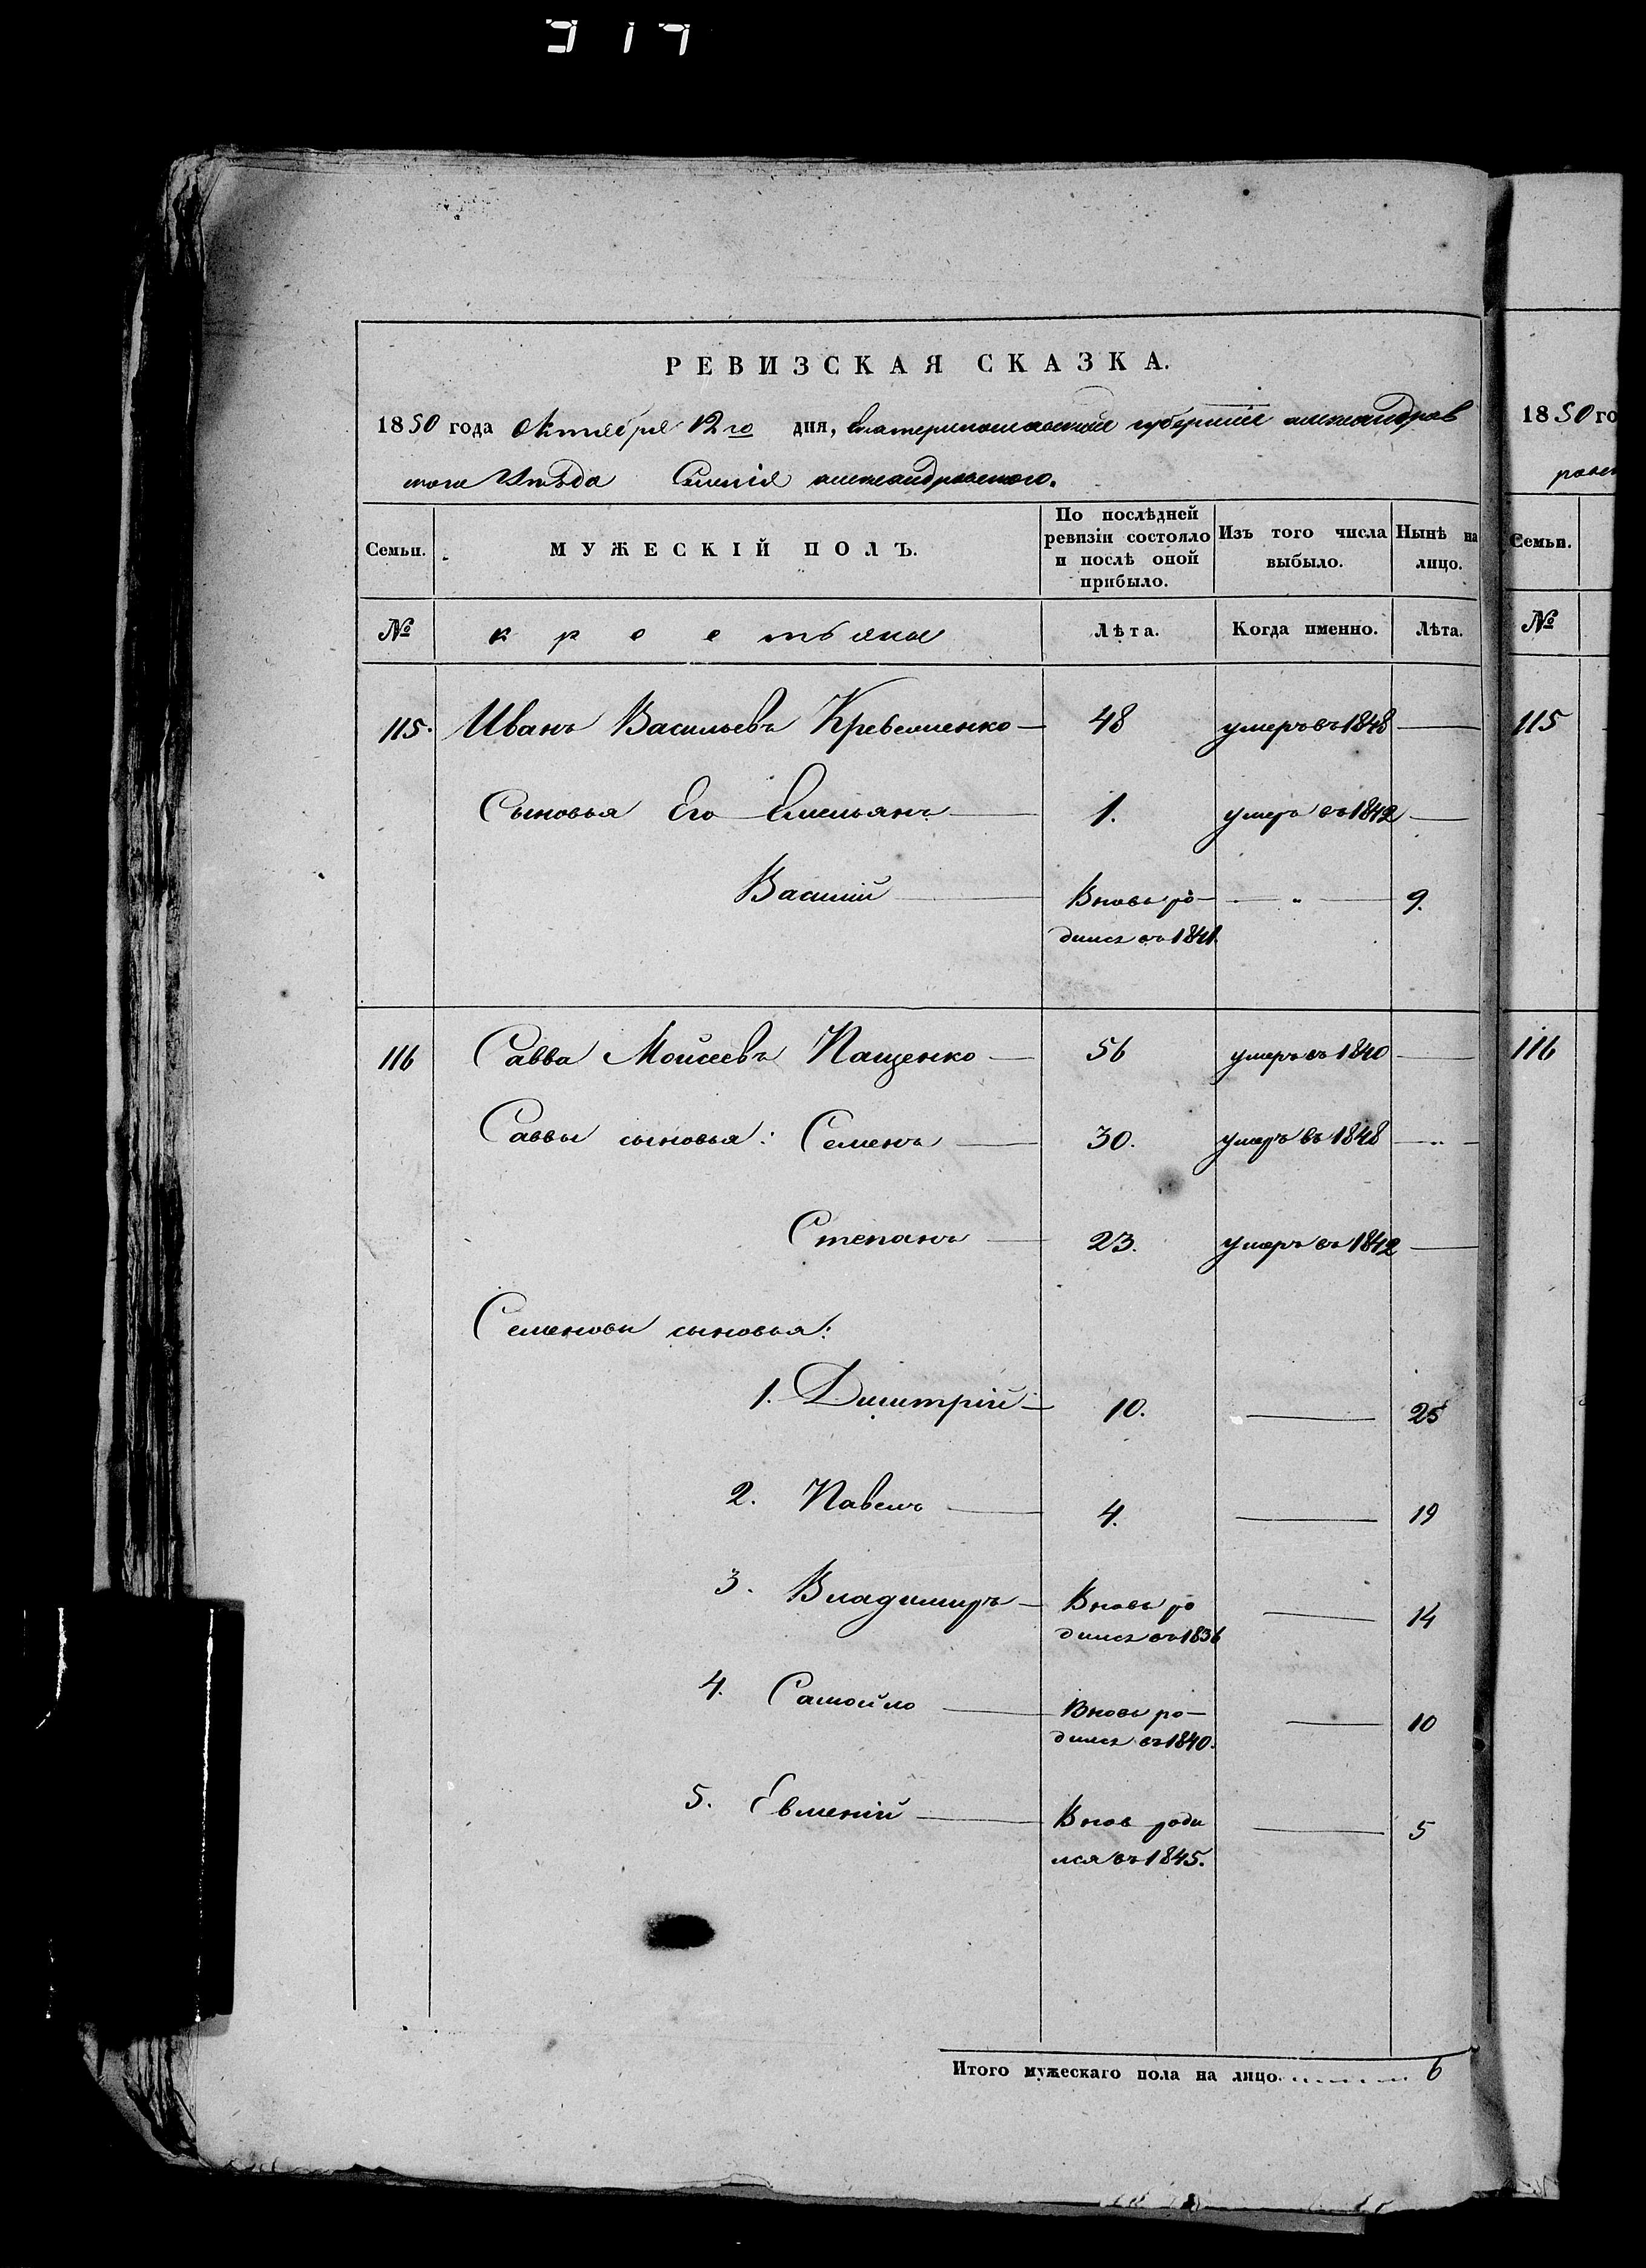 РЕВИЗСКАЯ СКАЗКА.
1850 года Октября 12го дня, Екатеринославской губернiи Александров
скаго Уѣзда Селенiя Александровского.
Семьи.
МУЖЕСКІЙ ПОЛЪ.
По послѣдней ревизіи состояло и послѣ оной прибыло.
Изъ того числа выбыло.
Нынѣ на лицо.
№ крестьяне Лѣта. Когда именно. Лѣта.
115. Иванъ Васильевъ Кревешенко 48 умеръ въ 1848
Сыновья Его Емельянъ 1. умеръ въ 1842
Василій Вновь ро- 9.
дился въ 1841.
116 Савва Мойсеевъ Пащенко 56 умеръ въ 1840
Саввы сыновья: Семенъ 30. умеръ въ 1848
Степанъ 23. умеръ въ 1842
Семеновы сыновья:
1. Димитрій 10. 25
2. Павелъ 4. 19
3. Владимиръ Вновь ро 14
дился въ 1836
4. Самойло Вновь ро- 10
дился въ 1840.
5. Евменій Внов роди 5
лся въ 1845.
Итого мужескаго пола на лицо. 6
1850 го
Семьи.
№
115
116